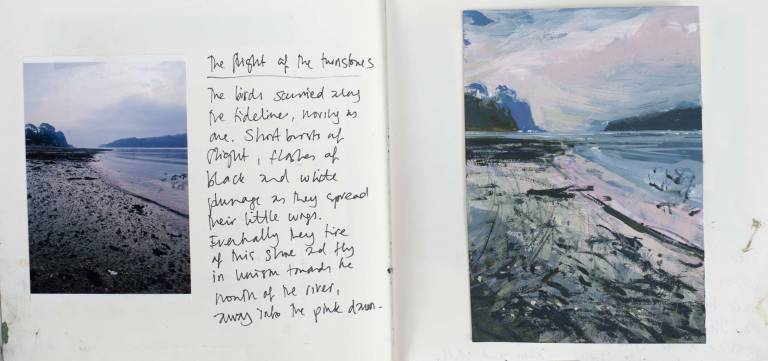 The flight of the turnstones
The birds scurried along
the tideline, moving as
one. Short bursts of
flight, flashes of
black and white
plumage as they spread
their little wings.
Eventually they tire
of this shore and fly
in unison towards the
mouth of the river,
away into the pink dawn.